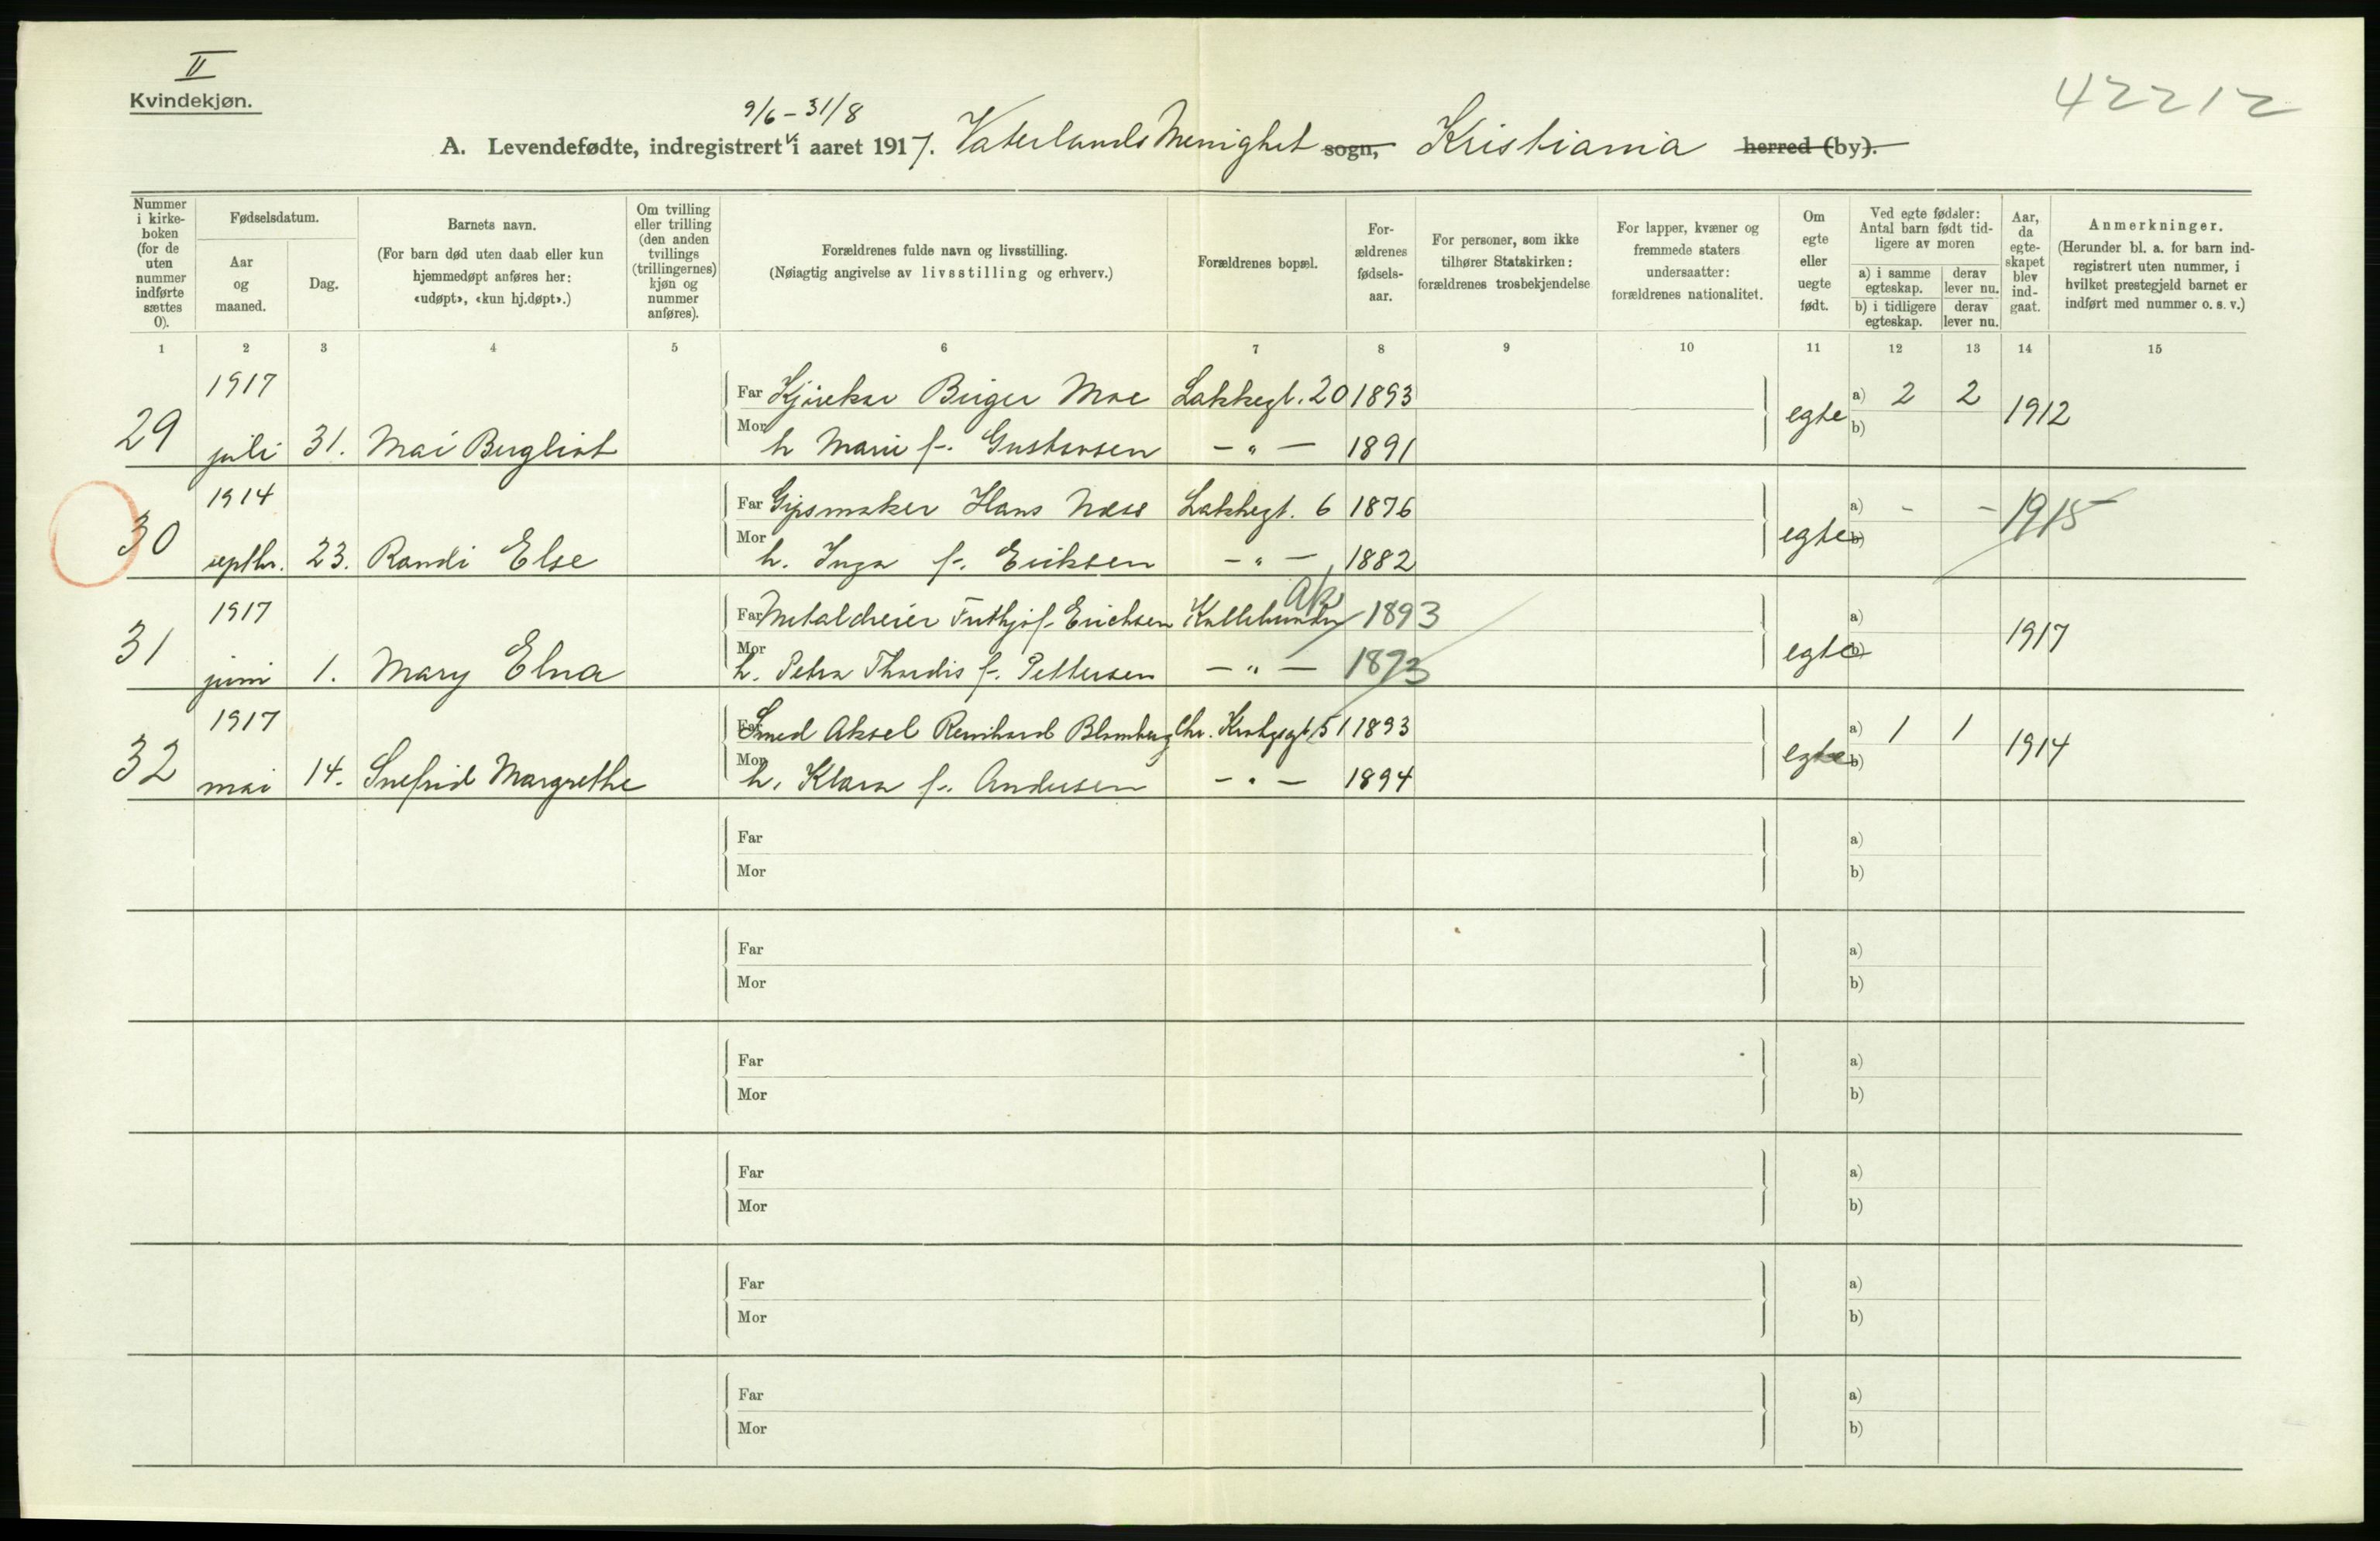 II
Kvindekjøn.
42212
9/6 – 31/8
A. Levendefødte, indregistrert i aaret 1917. Vaterlands Menighet sogn, Kristiania herred (by).
Nummer i kirkeboken (for de uten nummer indførte sættes 0).
Fødselsdatum.
Aar og maaned.
Dag.
Barnets navn.
(For barn død uten daab eller kun hjemmedøpt anføres her: «udøpt», «kun hj.døpt».)
Om tvilling eller trilling (den anden tvillings (trillingernes) kjøn og nummer anføres).
Forældrenes fulde navn og livsstilling.
(Nøiagtig angivelse av livsstilling og erhverv.)
Forældrenes bopæl.
Forældrenes fødselsaar.
For personer, som ikke tilhører Statskirken: forældrenes trosbekjendelse
For lapper, kvæner og fremmede staters undersaatter: forældrenes nationalitet.
Om egte eller uegte født.
Ved egte fødsler: Antal barn født tidligere av moren
a) i samme egteskap.
derav lever nu.
b) i tidligere egteskap.
derav lever nu.
Aar, da egteskapet blev indgaat.
Anmerkninger.
(Herunder bl. a. for barn indregistrert uten nummer, i hvilket prestegjeld barnet er indført med nummer o. s. v.)
1 2 3 4 5 6 7 8 9 10 11 12 13 14 15
1917 Far Kjørekar Birger Moe Lakkegt. 20 1893 a) 2 2
29 juli 31. Mai Bergliot Mor h Marie f. Gustavsen – „ – 1891 egte b) 1912
1914 Far Gipsmaker Hans Næss Lakkegt. 6 1876 a) - - 1915
30 septbr. 23. Randi Else Mor h. Inga f. Eriksen – „ – 1882 egte b)
Ak
1917 Far Metaldreier Frithjof Erichsen 1893 a)
31 juni 1. Mary Elna Mor h. Petra Thordis f. Pettersen – „ – 1893 egte b) 1917
1917 Far Smed Aksel Reinhard Blomberg Chr. Krohgsgt. 51 1893 a) 1 1
32 mai 14. Snefrid Margrethe Mor h. Klara f. Andersen – „ – 1894 egte b) 1914
Far a)
Mor b)
Far a)
Mor b)
Far a)
Mor b)
Far a)
Mor b)
Far a)
Mor b)
Far a)
Mor b)